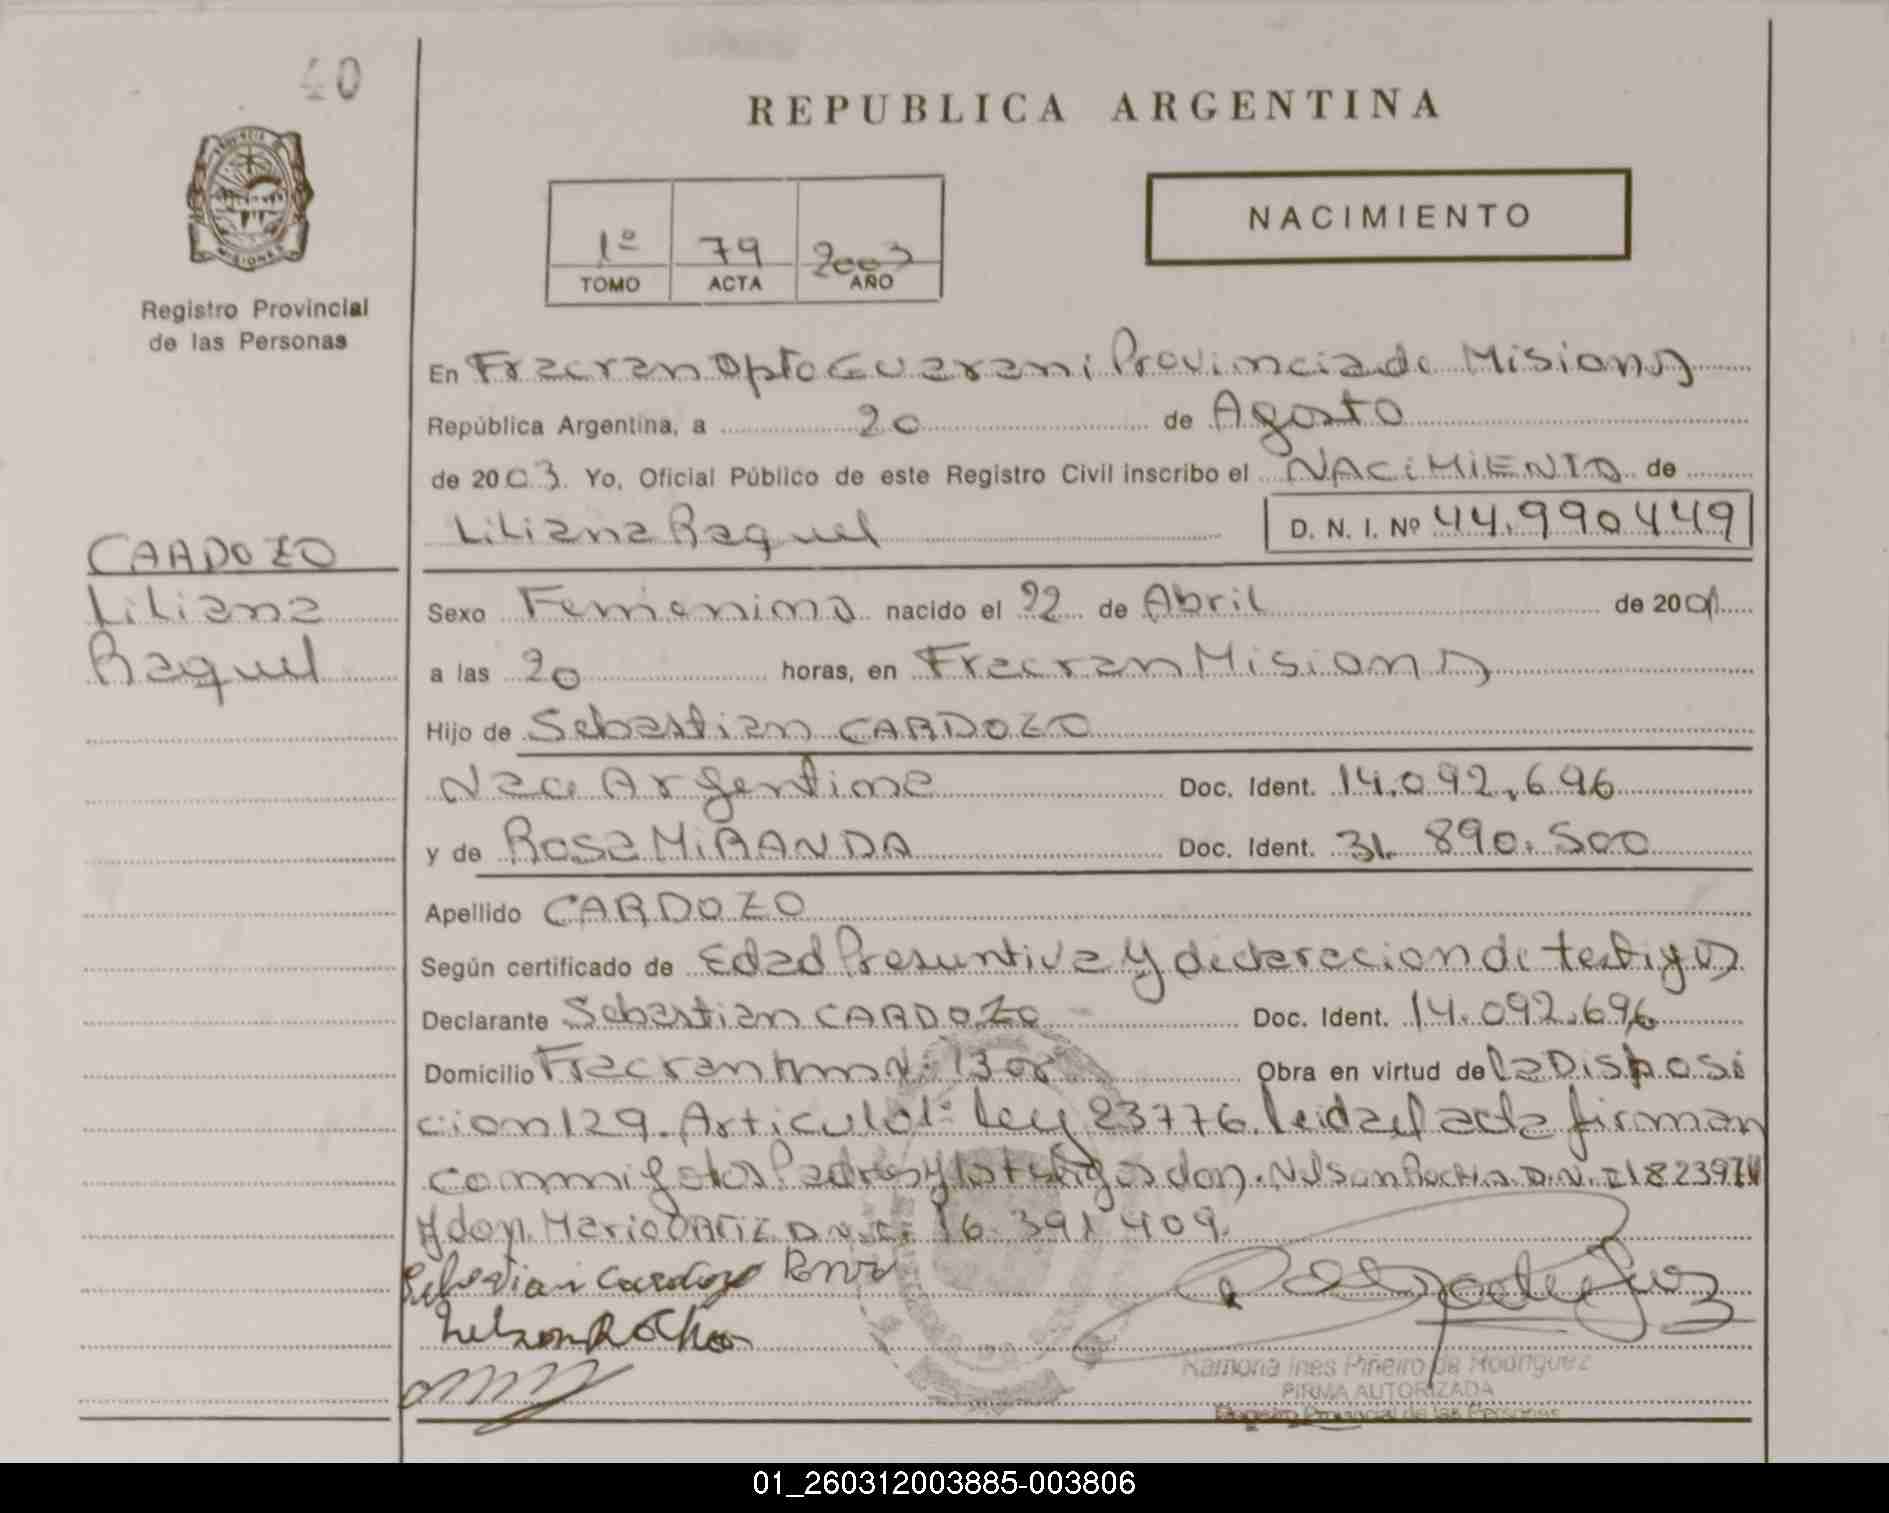 40
REPUBLICA ARGENTINA
NACIMIENTO
1º 79 2003
TOMO ACTA AÑO
Registro Provincial
de las Personas
En Fracran Dpto Guarani Provincia de Misiones
República Argentina, a 20 de Agosto
de 2003. Yo, Oficial Público de este Registro Civil inscribo el NACiMiENTO de
Liliana Raquel D. N. I. Nº 44.990449
CARDOZO
Liliana
Raquel
Sexo Femenino nacido el 22 de Abril de 2001
a las 20 horas, en Fracran Misiones
Hijo de Sebastian CARDOZO
Nac Argentina Doc. Ident. 14.092.696
y de Rosa MiRANDA Doc. Ident. 31. 890. 500
Apellido CARDOZO
Según certificado de Edad Presuntiva y declaracion de testigos
Declarante Sebastian CARDOZO Doc. Ident. 14.092.696
Domicilio Fracran Obra en virtud de la Disposi
cion 129. Articulo 1º Ley 23776. leida el acta firman
conmigo los Padres y los testigos don. Nelson Rocha D.N.I
y don. Mario ORTIZ D.N.I. 16.391 409.
Sebastian Cardozo
Nelson Rocha
Ramona Ines Piñeiro de Rodriguez
FIRMA AUTORIZADA
Registro Provincial de las Personas
01_260312003885-003806